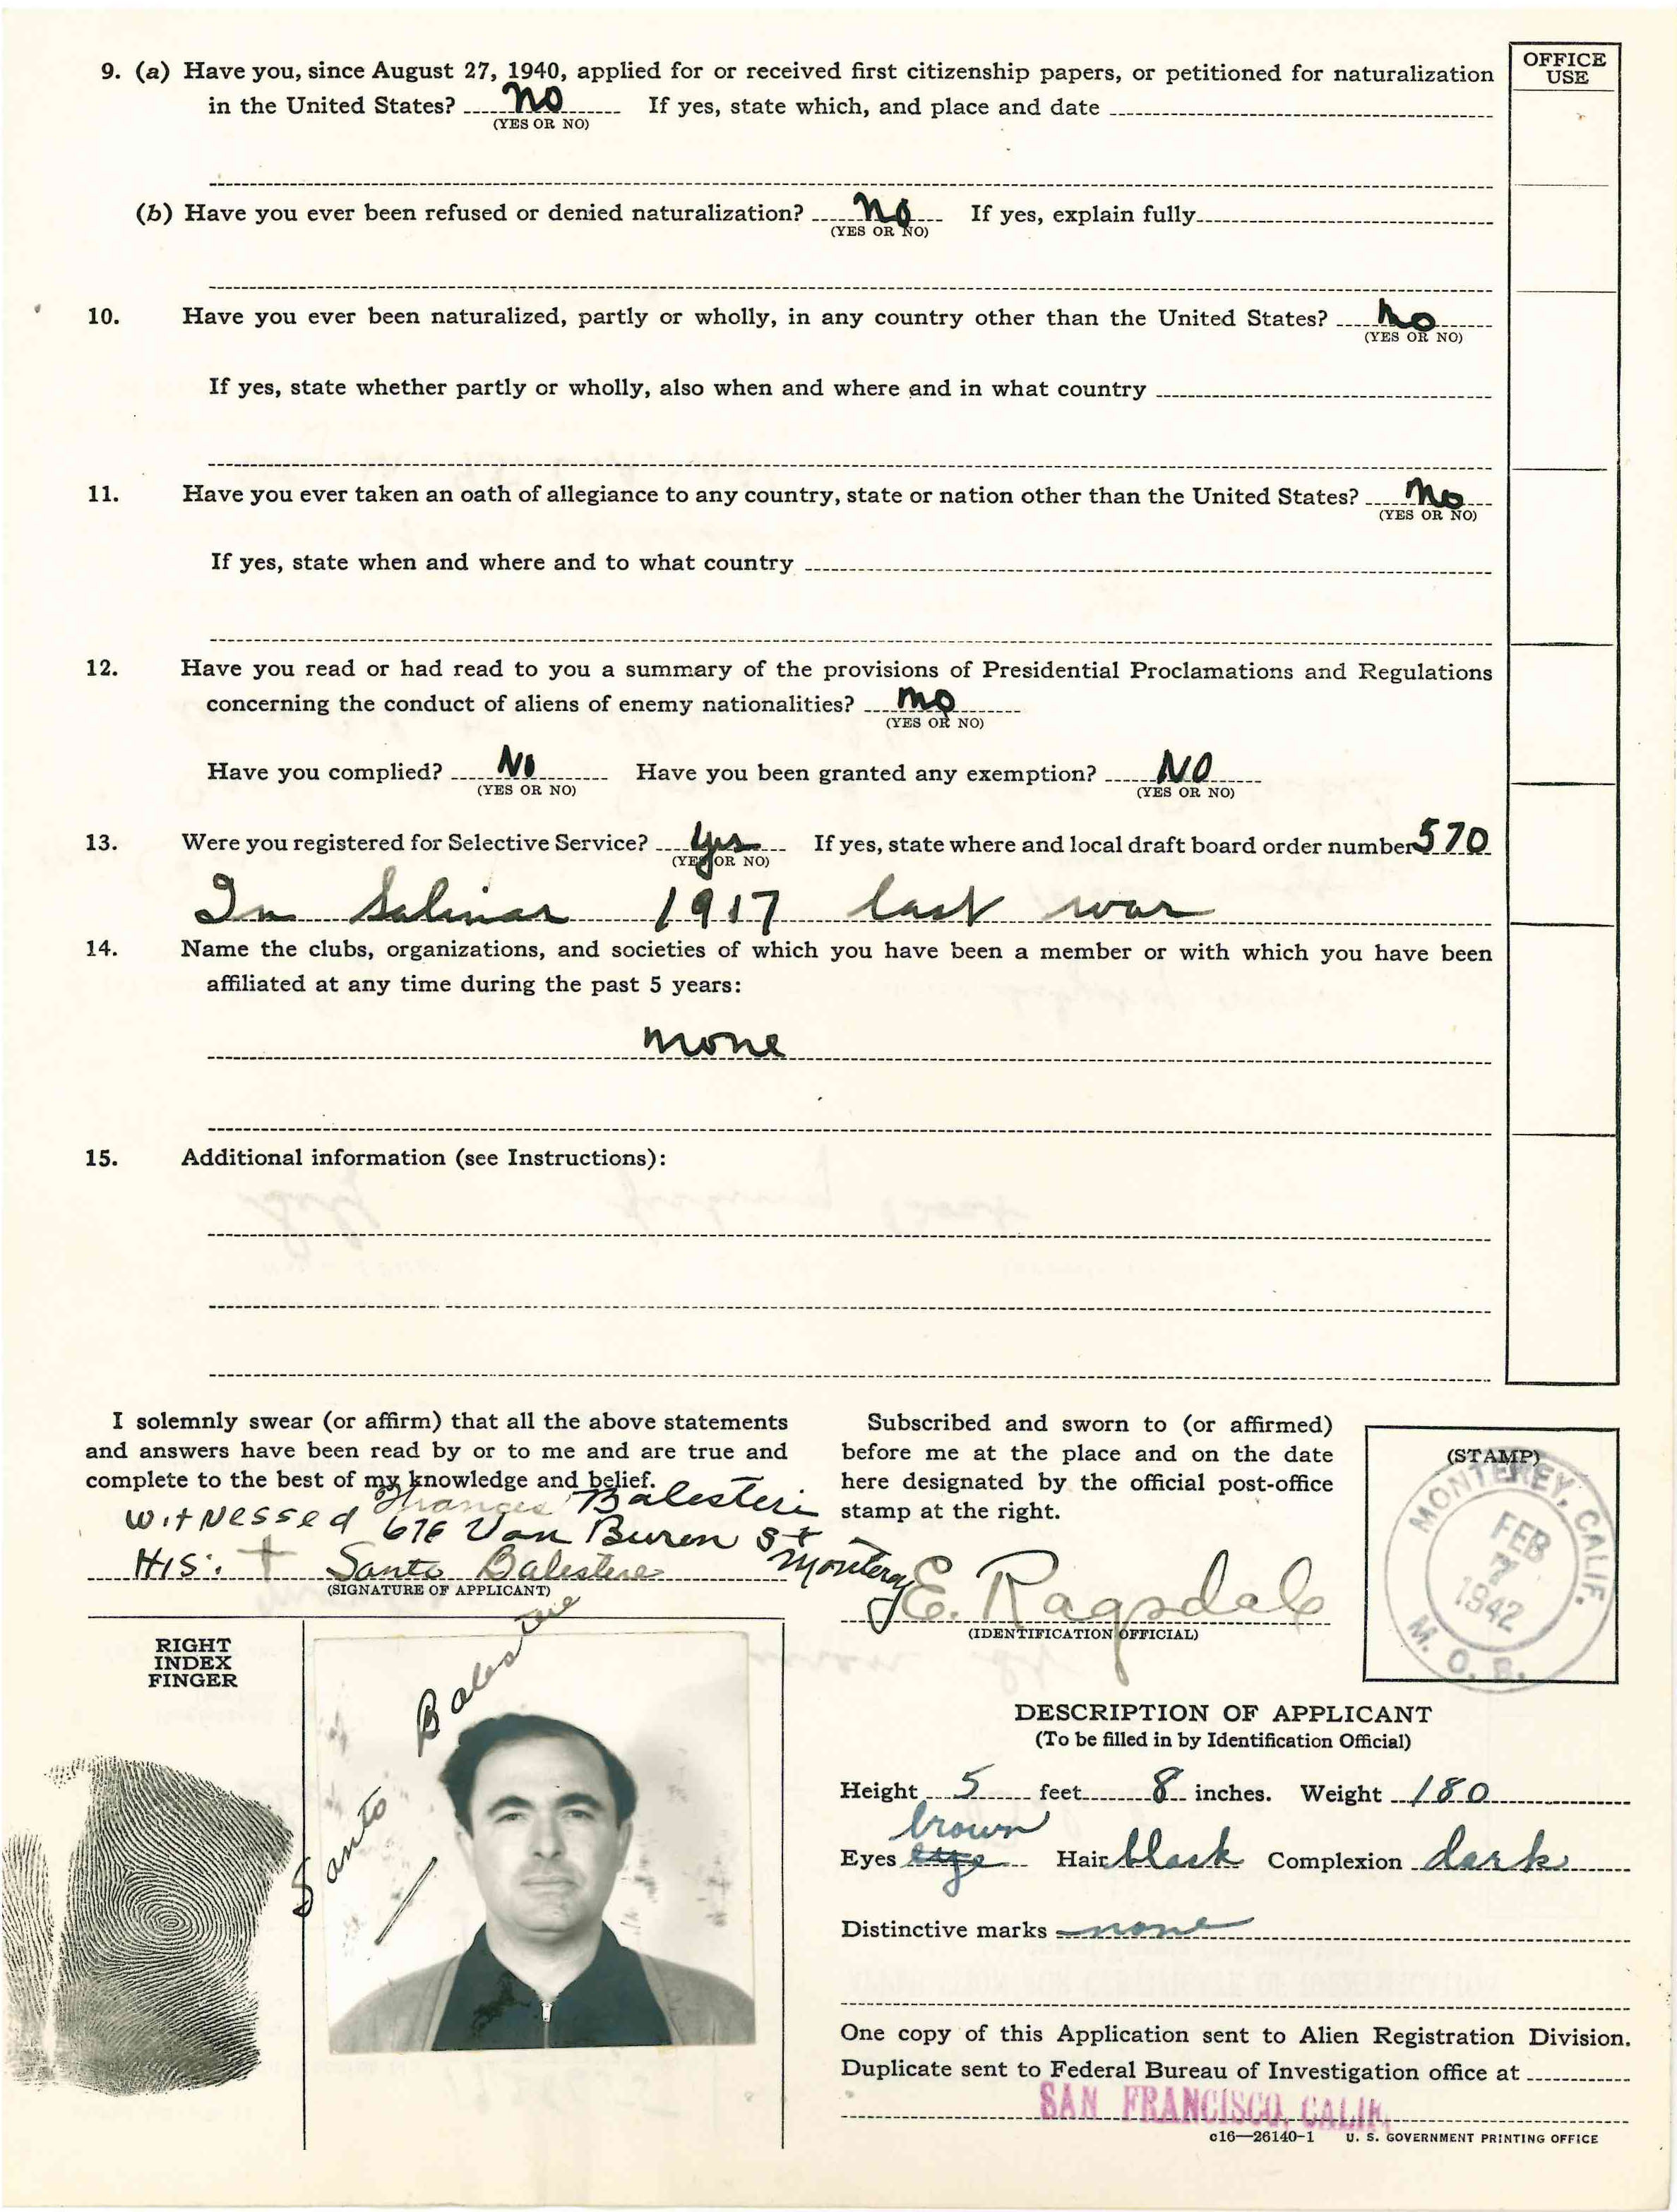 OFFICE
USE
9. (a) Have you, since August 27, 1940, applied for or received first citizenship papers, or petitioned for naturalization
in the United States? no If yes, state which, and place and date
(YES OR NO)
(b) Have you ever been refused or denied naturalization? no If yes, explain fully
(YES OR NO)
10. Have you ever been naturalized, partly or wholly, in any country other than the United States? no
(YES OR NO)
If yes, state whether partly or wholly, also when and where and in what country
11. Have you ever taken an oath of allegiance to any country, state or nation other than the United States? no
(YES OR NO)
If yes, state when and where and to what country
12. Have you read or had read to you a summary of the provisions of Presidential Proclamations and Regulations
concerning the conduct of aliens of enemy nationalities? no
(YES OR NO)
Have you complied? No Have you been granted any exemption? NO
(YES OR NO) (YES OR NO)
13. Were you registered for Selective Service? Yes If yes, state where and local draft board order number 570
(YES OR NO)
In Salinas 1917 last war
14. Name the clubs, organizations, and societies of which you have been a member or with which you have been
affiliated at any time during the past 5 years:
none
15. Additional information (see Instructions):
I solemnly swear (or affirm) that all the above statements
and answers have been read by or to me and are true and
complete to the best of my knowledge and belief.
Witnessed Frances Balesteri
676 Van Buren St
Monterey
HIS: + Santo Balestere
(SIGNATURE OF APPLICANT)
Subscribed and sworn to (or affirmed)
before me at the place and on the date
here designated by the official post-office
stamp at the right.
E. Ragsdale
(IDENTIFICATION OFFICIAL)
(STAMP)
MONTEREY, CALIF.
FEB
7
1942
M. O. B.
RIGHT
INDEX
FINGER
Santo Balestere
DESCRIPTION OF APPLICANT
(To be filled in by Identification Official)
Height 5 feet 8 inches. Weight 180
brown
Eyes eye Hair black Complexion dark
Distinctive marks none
One copy of this Application sent to Alien Registration Division.
Duplicate sent to Federal Bureau of Investigation office at
SAN FRANCISCO, CALIF.
c16—26140-1 U. S. GOVERNMENT PRINTING OFFICE